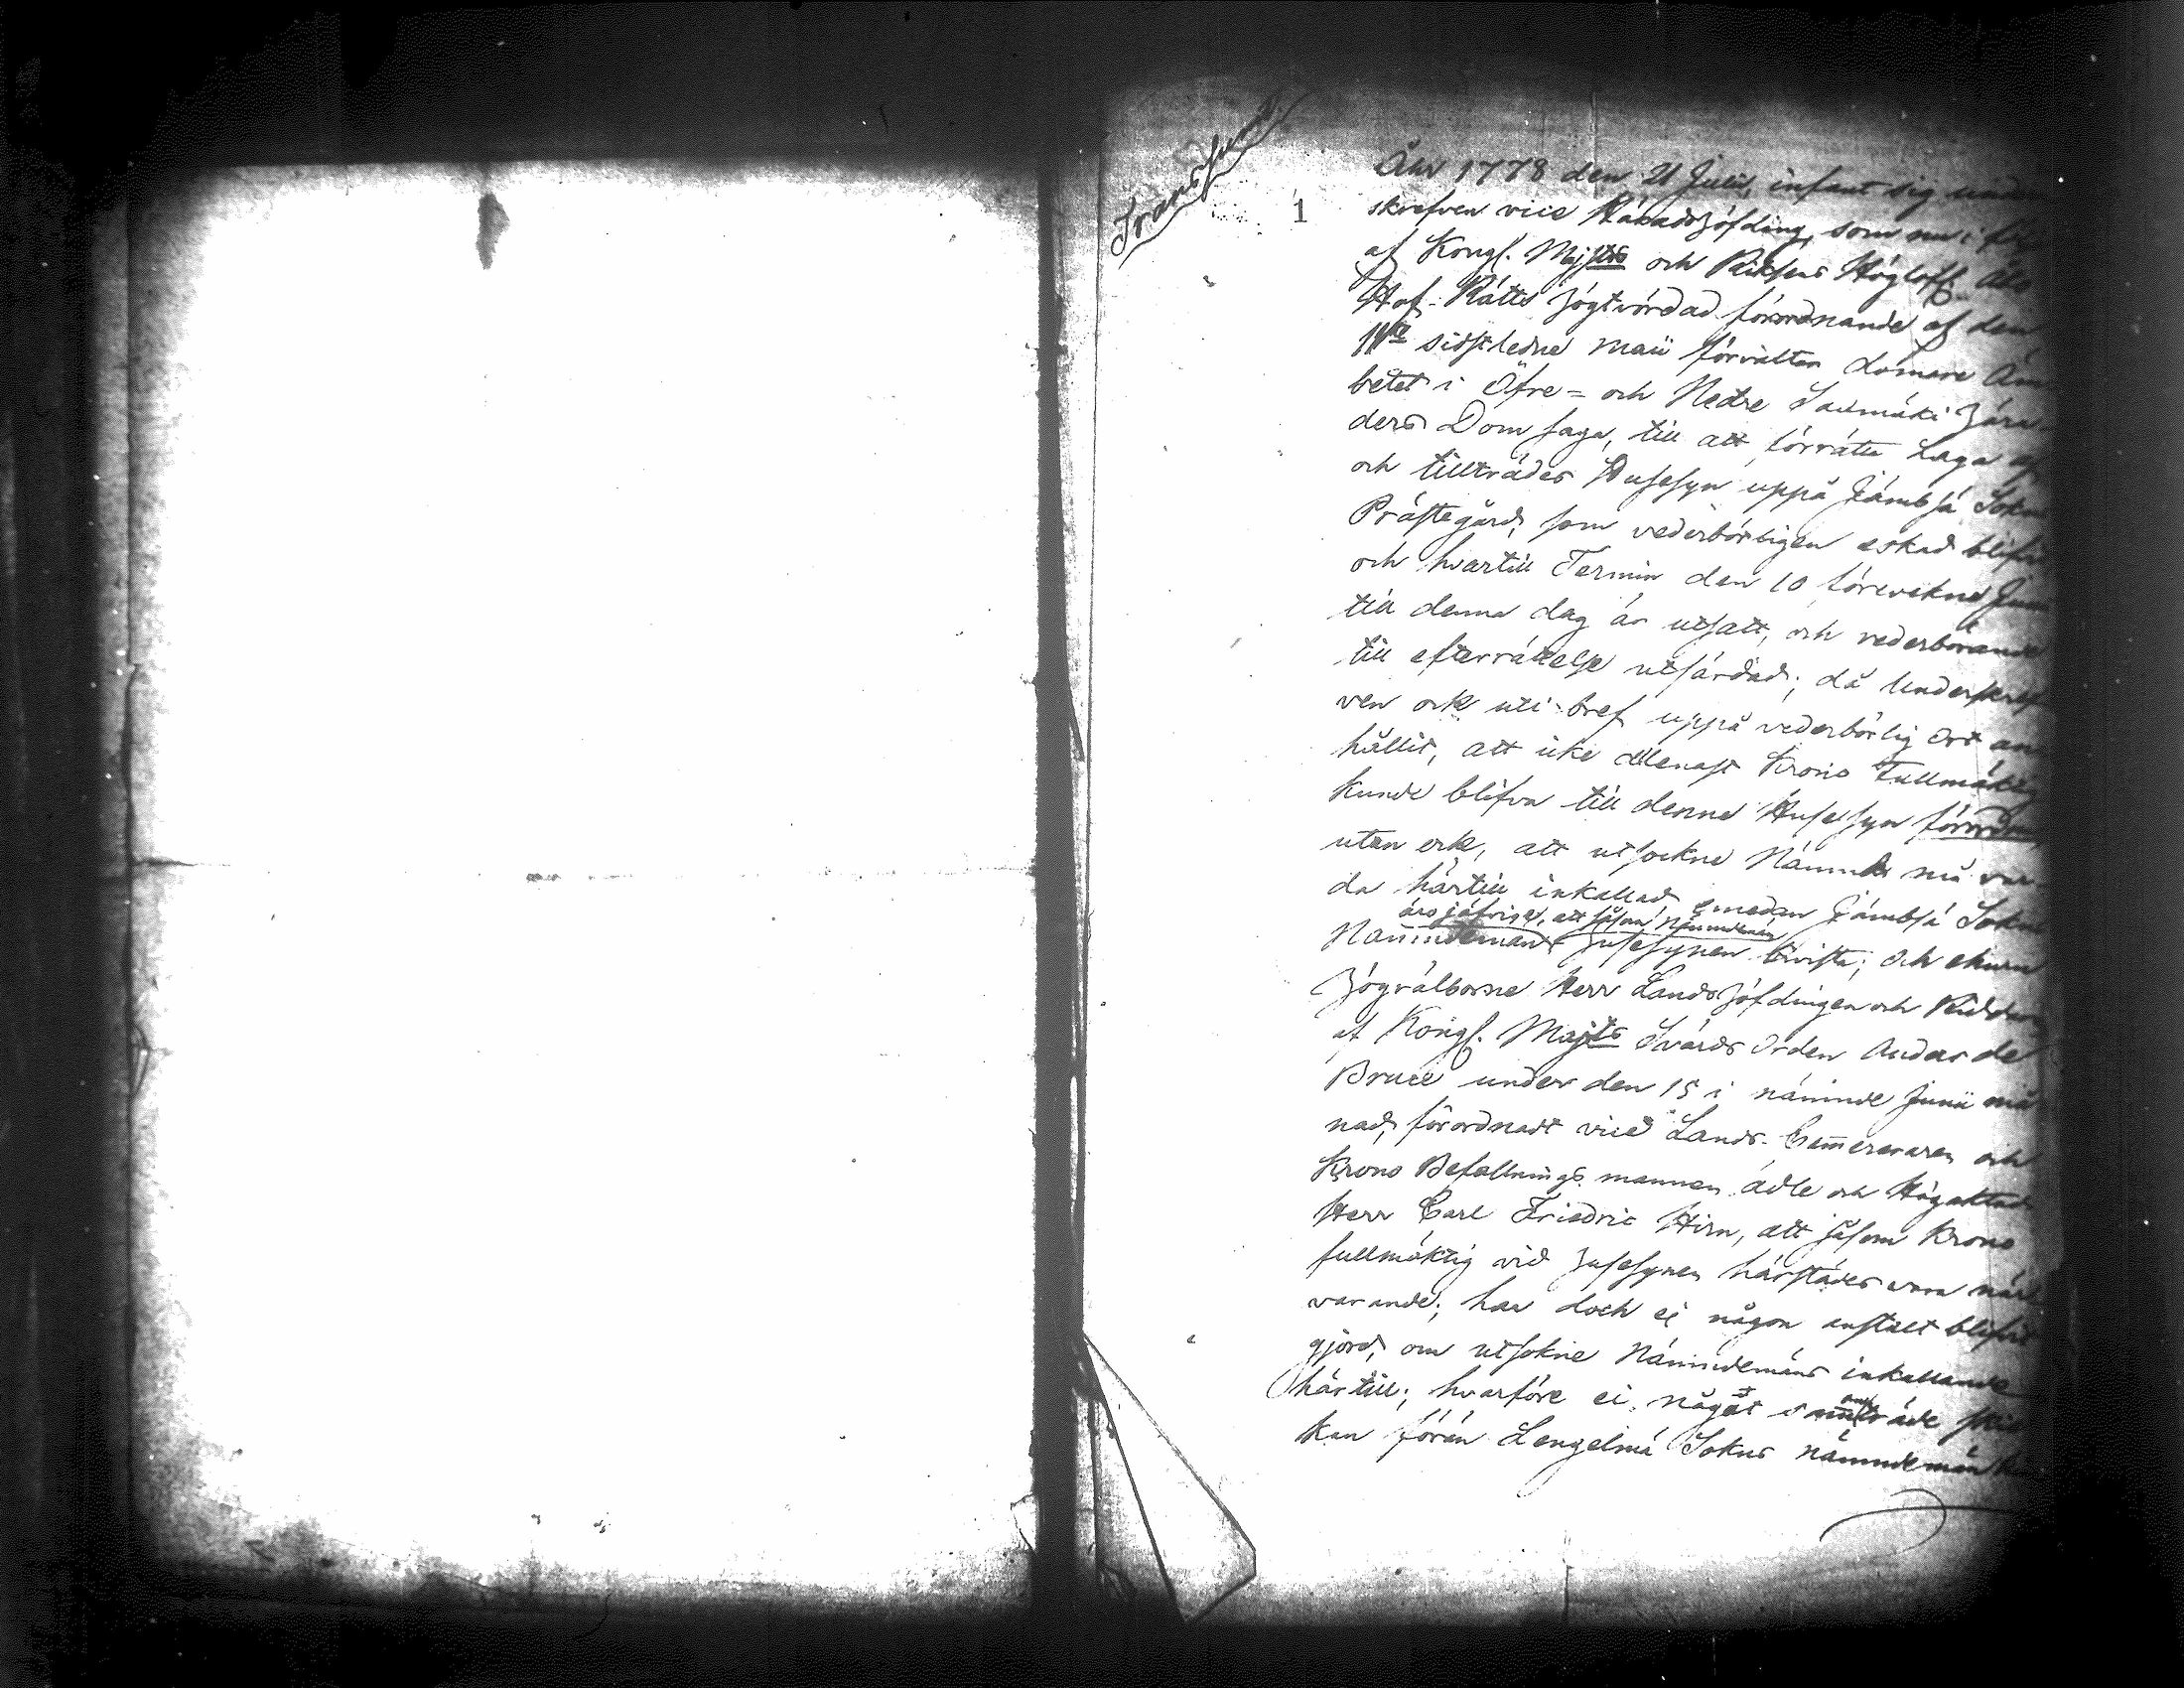 Transsumt.
1
Åhr 1778 den 21 Julii, infant sig under
skrefven vice Häradshöfding, som nu i
af Kongl. Majsts och Riksens Höglofl. Åbo
Hof-Rätts högtvördad förordnande af den
11te sidstledne Maii förvaltar Domare Äm
betet i Öfre= och Nedre Saxmäki Hära-
ders Domsaga, till att förrätta Laga af
och tillträdes Husesyn uppå Jämbsä Sokn
Prästegård, som vederbörligen eskad blifvit
och hvartill Termin den 10 förevekne Junii
till denna dag är utsatt, och vederbörande
till efterrättelse utfärdad; då Underskref
ven ock uti bref uppå vederbörlig Ort an
hållit, att icke allenast Krono Fullmäktig
kunde blifva till denne Husesyn förordnad
utan ock, att utsockne Nämnd må var-
da härtill inkallad, emedan Jämbsä Sokne
äro jäfvige, att såsom Nämndemän
Nämndemän husesynen bivista; Och ehuru
Högvälborne Herr Landshöfdingen och Riddaren
af Kongl. Majts Svärds Orden Anders de
Bruce under den 15 i nämnde Junii må
nad, förordnadt vice Lands-Camereraren och
Krono Befallningsmannen ädle och Högaktad
Herr Carl Friedric Hirn, att såsom Krono
fullmäktig vid husesynen härstädes vara när
varande; har doch ei någon anstalt blifvit
gjord, om utsokne Nämndemäns inkallande
härtill; hvarföre ei något
kan förän Lengelmä Sokns nämndemän